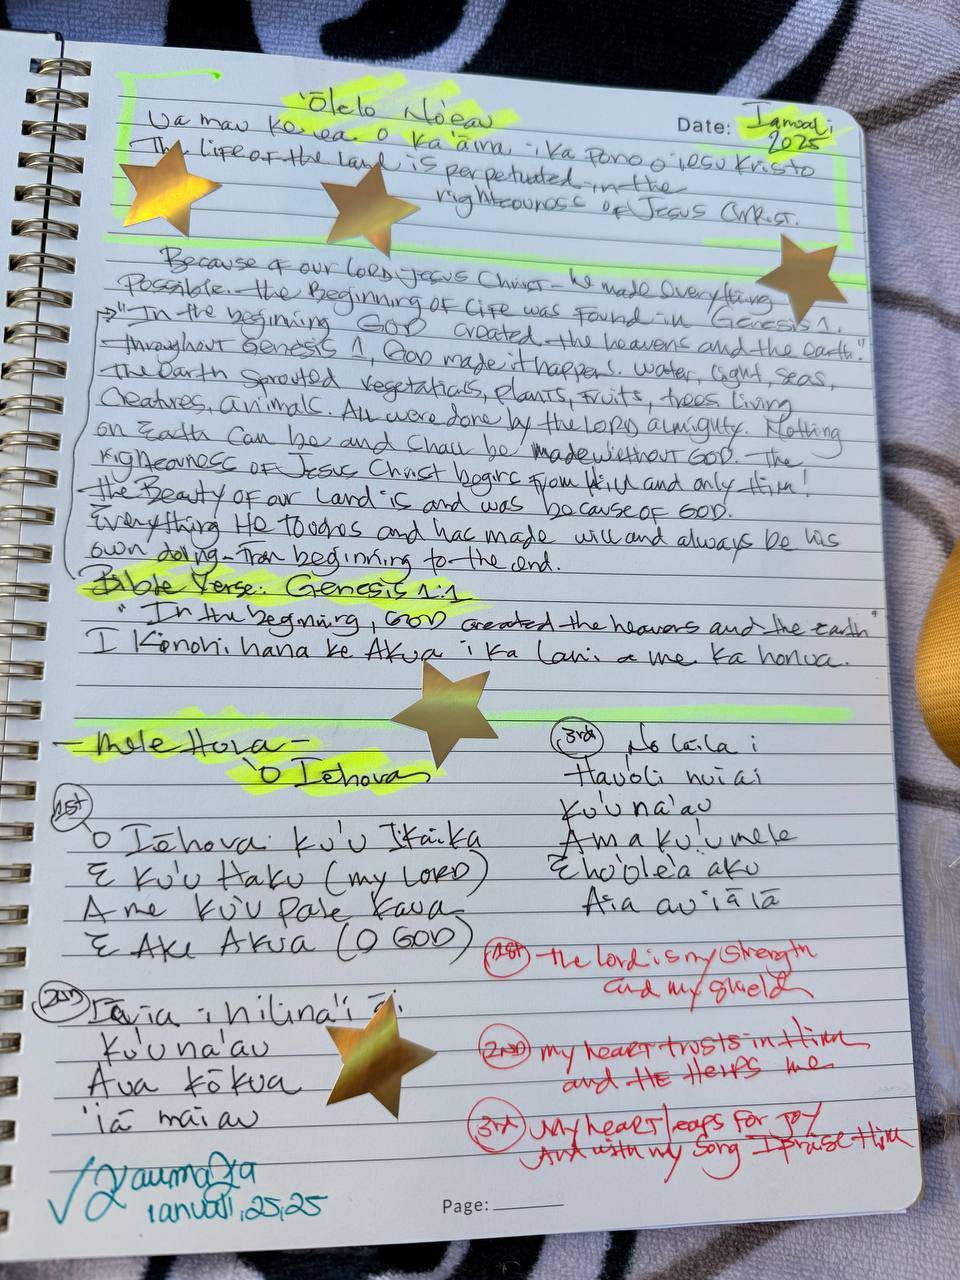 'Ōlelo No'eau
Date: Ianuali
2025
Ua mau ke ea o ka 'āina i ka pono o iesu Kristo
The life of the land is perpetuated in the
righteouness of Jesus Christ.
Because of our LORD Jesus Christ - he made everything
possible. The Beginning of Life was found in Genesis 1.
"In the beginning GOD created the heavens and the Earth."
Throughout Genesis 1, GOD made it happen. Water, light, seas,
The Earth sprouted vegetation, plants, fruits, trees, living
Creatures, animals. All were done by the LORD almighty. Nothing
on Earth can be and shall be made without GOD. The
righteouness of Jesus Christ begins from Him and only Him!
The Beauty of our Land is and was because of GOD.
Everything He touches and has made will and always be his
own doing - from beginning to the end.
Bible Verse: Genesis 1:1
"In the beginning, GOD created the heavens and the earth"
I Kinohi, hana ke Akua i ka lani a me ka honua.
- Mele Hou -
'O Iehova
1st
O Iēhova ku'u Ikaika
E Ku'u Haku (my LORD)
A me Ku'u Pale Kaua
E Ake Akua (O GOD)
2nd
I hilina'i
Ku'u na'au
Aua kōkua
'iā mai au
3rd No laila i
Hau'oli nui ai
Ku'u na'au
A ma ku'u mele
E ho'ole'a aku
Aia au iā iā
1st The Lord is my strength
and my shield
2nd My heart trusts in Him
and HE Helps me
3rd My heart leaps for joy
And with my song I praise Him
Ianuali, 25, 25
Page: